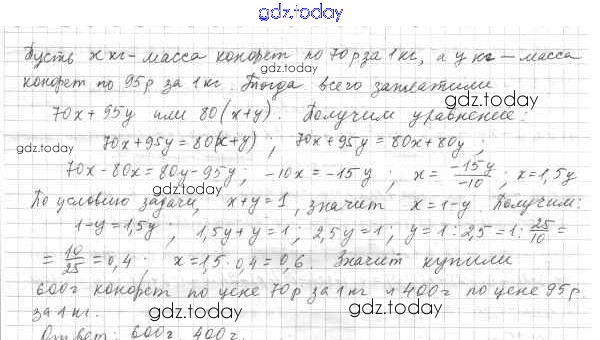 gdz.today
Пусть x кг - масса конфет по 70 р за 1 кг, а y кг - масса
конфет по 95 р за 1 кг. Тогда всего заплатили
gdz.today
gdz.today
70x + 95y или 80(x+y). Получим уравнение:
70x+95y = 80(x+y) ; 70x+95y = 80x+80y ;
gdz.today
gdz.today
70x-80x = 80y-95y ; -10x = -15y ; x = -15y/-10 ; x = 1,5y
По условию задачи, x+y=1, значит x=1-y. Получим:
gdz.today
1-y=1,5y ; 1,5y+y=1 ; 2,5y=1 ; y=1:2,5=1:25/10=
= 10/25 = 0,4 ; x=1,5·0,4=0,6. Значит купили
gdz.today
600г конфет по цене 70р за 1 кг и 400г по цене 95р.
за 1 кг.
gdz.today
gdz.today
Ответ: 600г, 400г.